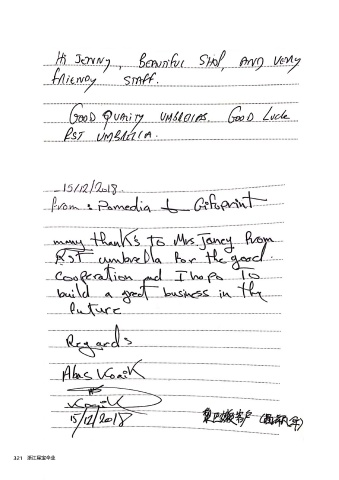 Hi Jenny, Beautiful Shop, and very
friendy staff.
Good Quality umbrellas. Good Luck
RST umbrella.
15/12/2018
From : Pomedia & Gifoprint
many thanks to Mrs. Jancy From
RST umbrella For the good
Cooperation and I hope To
build a great business in the
Future
Regards
Abas
15/12/2018
321 浙江福宝伞业